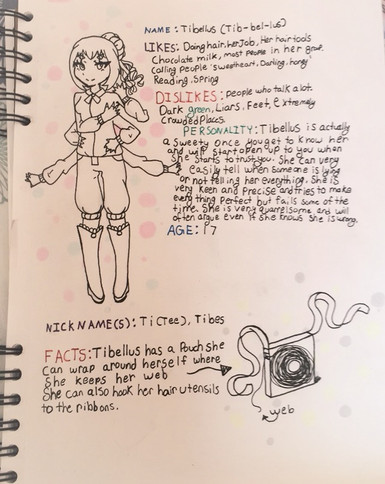 NAME: Tibellus (Tib-bel-lus)
LIKES: Doing hair, her Job, Her hair tools
Chocolate milk, most people in her group.
Calling people 'sweetheart, Darling, honey'
Reading, Spring
DISLIKES: people who talk a lot.
Dark green, Liars, Feet, extremely
Crowded Places.
PERSONALITY: Tibellus is actually
a sweety once you get to know her
and will start open up to you when
she starts to trust you. She can very
easily tell when someone is lying
or not telling her everything. She is
very keen and precise and tries to make
everything perfect but fails some of the
time. She is very quarrelsome and will
often argue even if she knows she is wrong.
AGE: 17
NICKNAME(S): Ti (Tee), Tibes
FACTS: Tibellus has a Pouch she
can wrap around herself where
she keeps her web
She can also hook her hair utensils
to the ribbons.
web